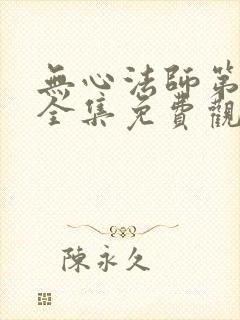 無心法師第
全集免費觀
陳永久